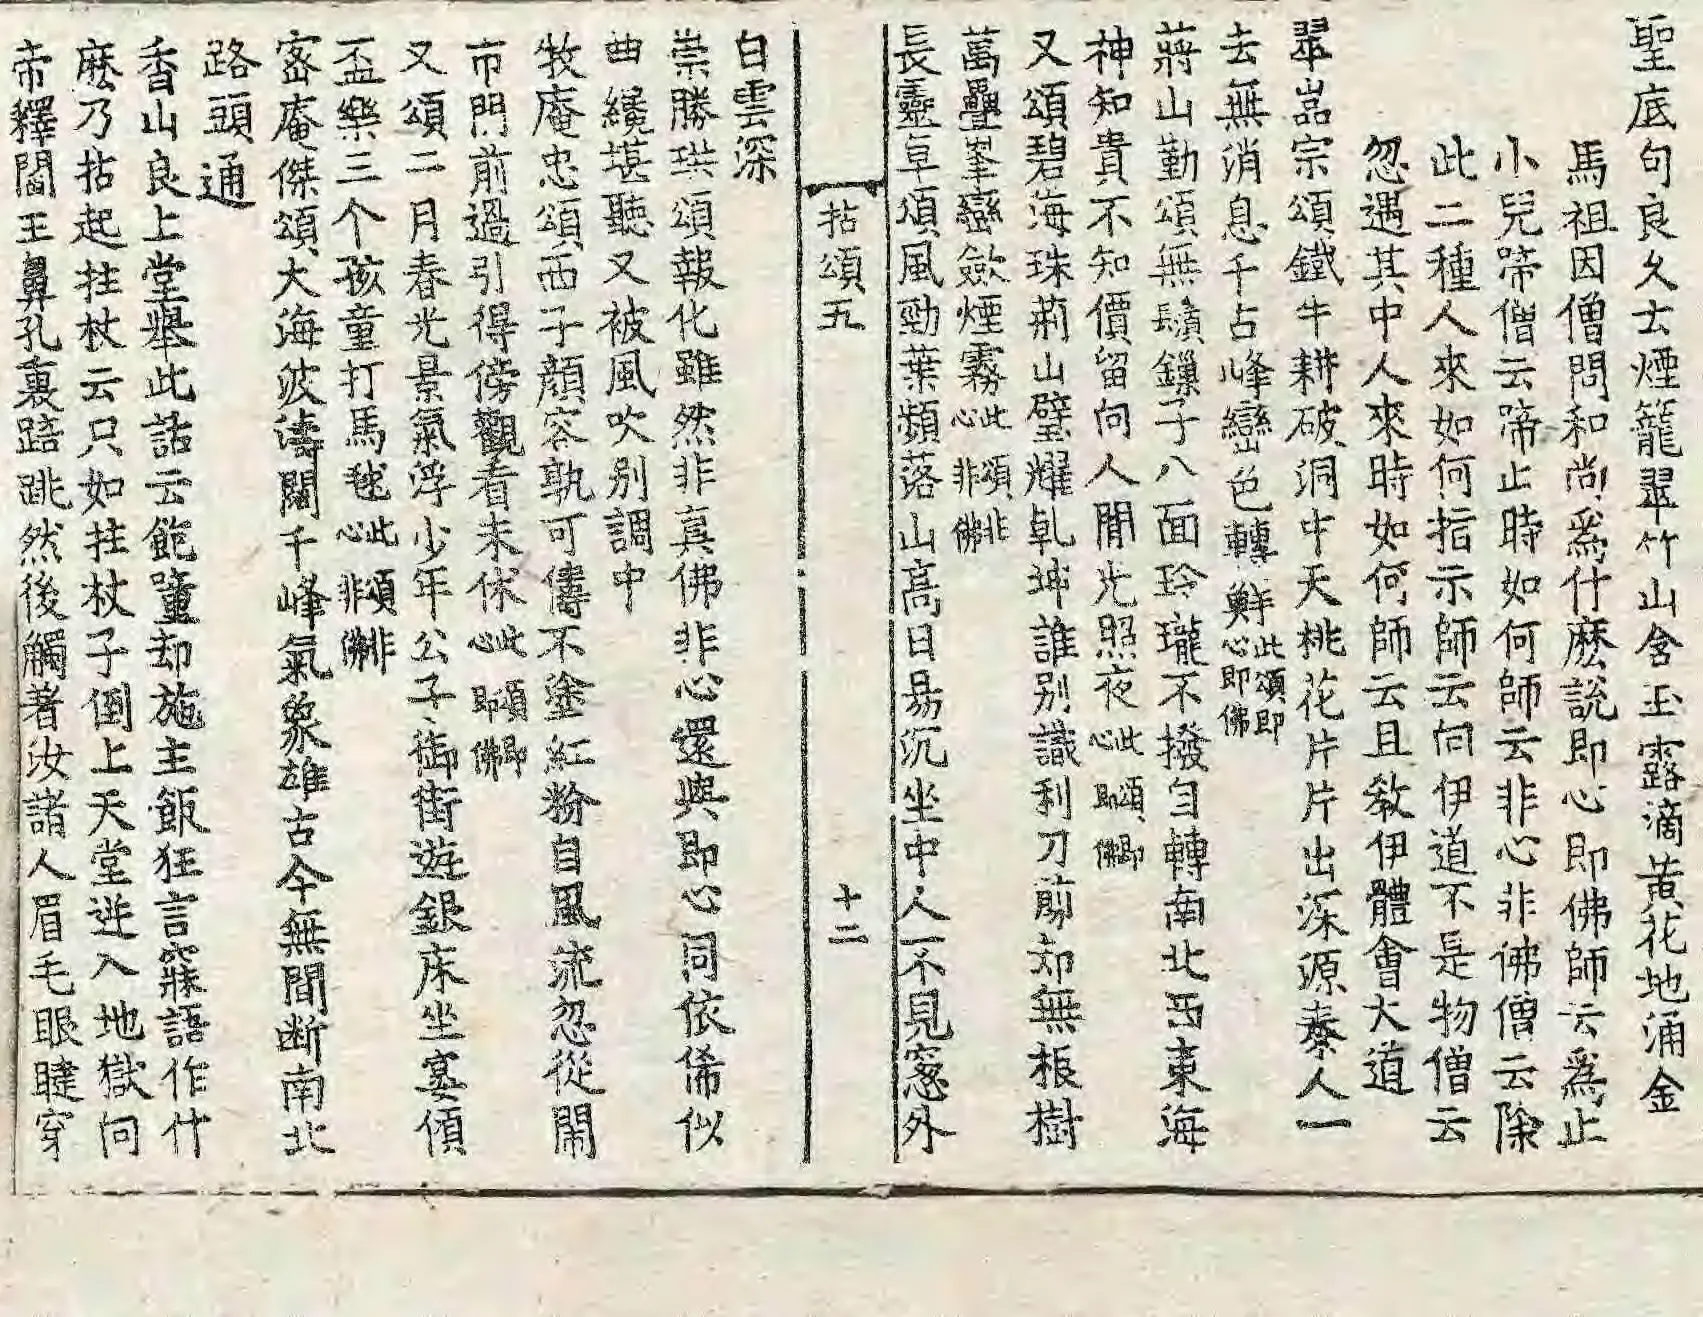 聖底句良久云煙籠翠竹山含玉露滴黄花地涌金
馬祖因僧問和尚爲什麽說即心即佛師云爲止
小兒啼僧云啼止時如何師云非心非佛僧云除
此二種人來如何指示師云向伊道不是物僧云
忽遇其中人來時如何師云且教伊體會大道
翠嵓宗頌鐵牛耕破洞中天桃花片片出深源秦人一
去無消息千古峰巒色轉鮮此頌即心即佛
蔣山勤頌無鬚鏁子八面玲瓏不撥自轉南北西東海
神知貴不知價留向人間光照夜此頌即心即佛
又頌碧海珠荊山璧耀乾坤誰别識利刀剪却無根樹
萬疊峯巒斂煙霧此頌非心非佛
長靈卓頌風勁葉頻落山高日易沉坐中人不見窓外
拈頌五
十二
白雲深
崇勝珙頌報化雖然非真佛非心還與即心同依俙似
曲纔堪聽又被風吹别調中
牧庵忠頌西子顔容孰可儔不塗紅粉自風流忽從閙
市門前過引得傍觀看未休此頌即心即佛
又頌二月春光景氣浮少年公子御街遊銀床坐宴傾
盃樂三个孩童打馬毬此頌非心非佛
密庵傑頌大海波濤闊千峰氣象雄古今無間断南北
路頭通
香山良上堂舉此話云飽䭔却施主飯狂言寐語作什
麽乃拈起拄杖云只如拄杖子倒上天堂逆入地獄向
帝釋閻王鼻孔裏踣跳然後觸著汝諸人眉毛眼睫穿